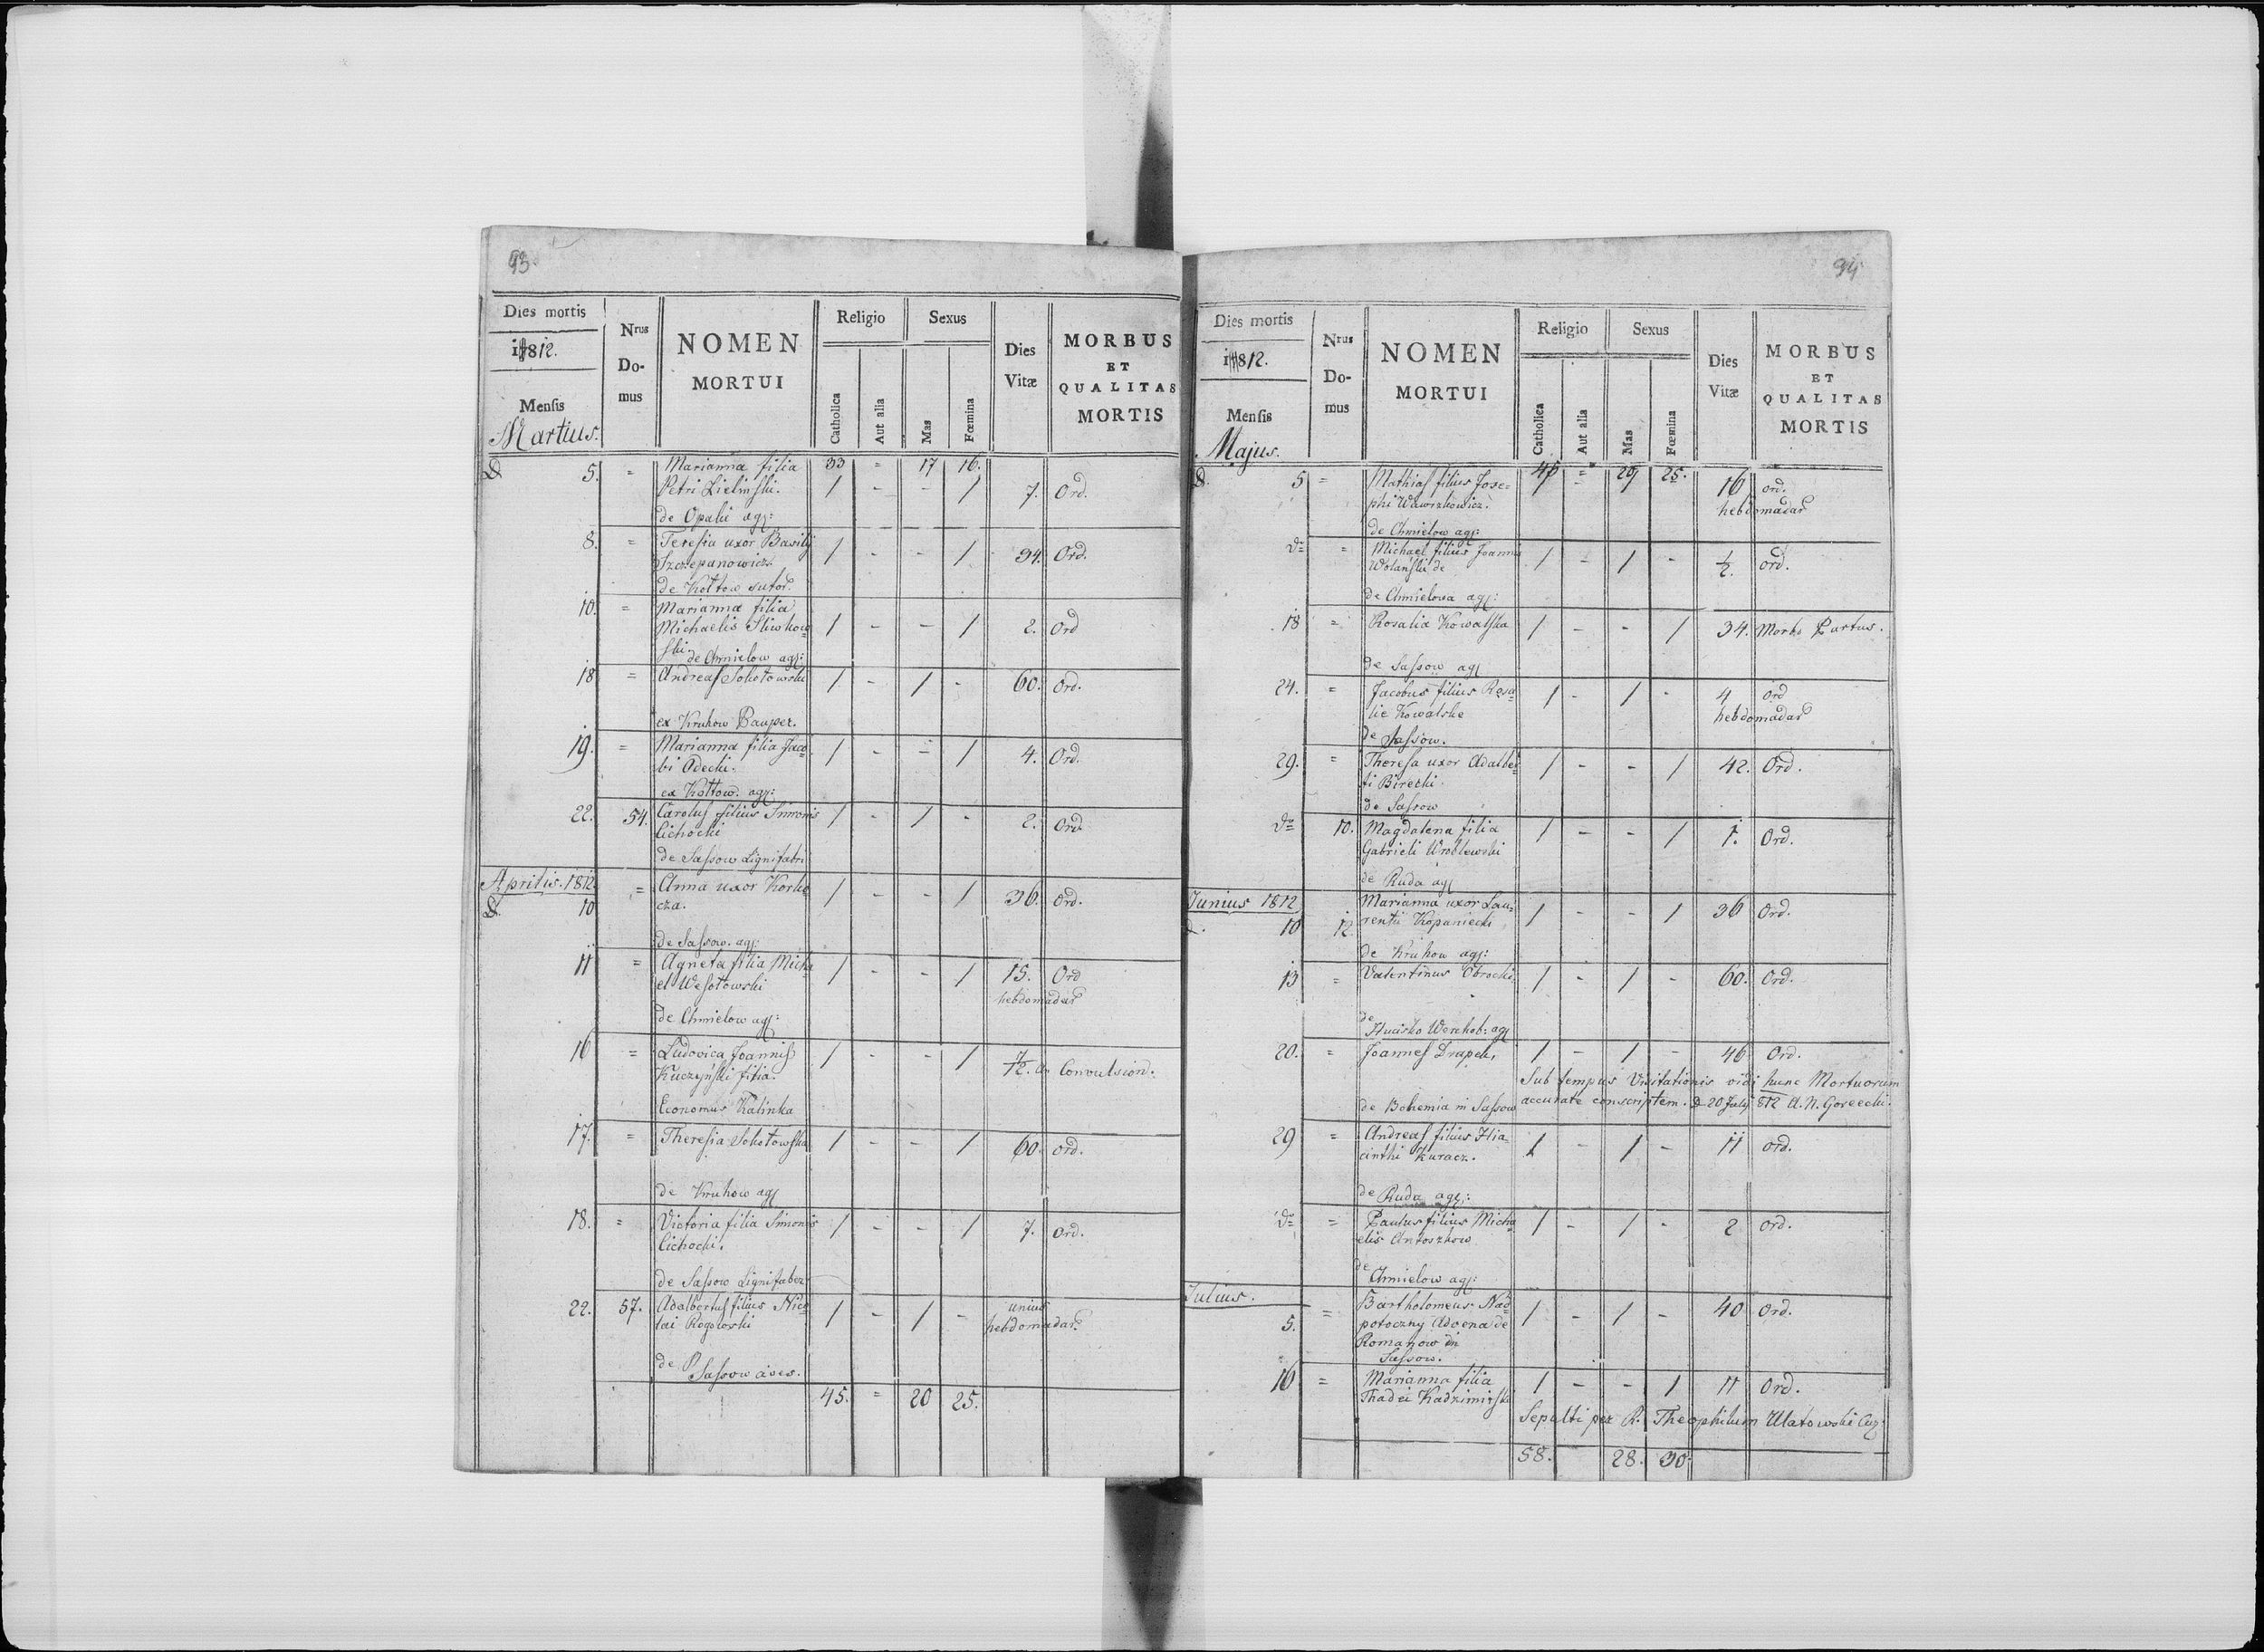 93.
Dies mortis
1812.
Mensis
Martius.
Nrus
Do-
mus
NOMEN
MORTUI
Religio
Catholica
Aut alia
Sexus
Mas
Fœmina
Dies
Vitæ
MORBUS
ET
QUALITAS
MORTIS
33 = 17 16.
D. 5. = Marianna filia
Petri Zielinski. 1 - - 1 7. Ord.
de Opaki agr:
8. = Teresia uxor Basilij
Szczepanowicz. 1 - - 1 34. Ord.
de Koltow sutor
10. = Marianna filia
Michaelis Sliwkow 1 - - 1 2. Ord
ski.
de Chmielow agr:
18 = Andreas Sokołowski 1 - 1 - 60. Ord.
ex Kruhow Pauper.
19. = Marianna filia Jaco 1 - - 1 4. Ord.
bi Odecki.
ex Kołtow. agr:
22. 54. Carolus filius Simonis 1 - 1 - 2. Ord.
Cichocki
de Sassow Lignifabri
Aprilis. 1812.
D. 10 = Anna uxor Korko 1 - - 1 36. Ord.
cza.
de Sassow. agr:
11 = Agneta filia Micha 1 - - 1 15. Ord
el Wesołowski hebdomadar
de Chmielow agr:
16 = Ludovica Joannis 1 - - 1 1/2. Convulsion.
Kuczyński filia.
Economus Kalinka
17. = Theresia Sokołowska 1 - - 1 60. ord.
de Kruhow agr
18. = Victoria filia Simonis 1 - - 1 7. Ord.
Cichocki.
de Sassow Lignifaber
22. 57. Adalbertus filius Nico 1 - 1 - unius
lai Rogowski hebdomadar
de Sassow
45. = 20 25.
94
Dies mortis
1812.
Mensis
Majus.
Nrus
Do-
mus
NOMEN
MORTUI
Religio
Catholica
Aut alia
Sexus
Mas
Fœmina
Dies
Vitæ
MORBUS
ET
QUALITAS
MORTIS
45 = 20 25.
D. 5 = Mathias filius Jose- 1 - 1 16 ord.
phi Wawrzkowicz. hebdomadar
de Chmielow agr:
do = Michael filius Joannis 1 - 1 - 1/2. ord.
Wolański de
de Chmielowa agr:
18 = Rosalia Kowalska 1 - - 1 34. Morbo Partus.
de Sassow agr
24. = Jacobus filius Rosa 1 - 1 - 4 ord
lie Kowalske hebdomadar
de Sassow.
29. = Theresa uxor Adalber 1 - - 1 42. Ord.
ti Birecki
de Sassow
do 10. Magdalena filia 1 - - 1 1. Ord.
Gabrieli Wroblewski
de Ruda agr
Junius 1812
D. 10 12. Marianna uxor Lau- 1 - - 1 36 Ord.
rentii Kopaniecki
de Kruhow agr:
13 = Valentinus Obrocki 1 - 1 - 60. Ord.
de
Hucisko Werchob: agr
20. = Joannes Drapek, 1 - 1 - 46 Ord.
Sub tempus Visitationis vidi hunc Mortuorum
de Bohemia in Sassow accurate conscriptem. D 20 July 812 A. N. Gorecki.
29 = Andreas filius Hia- 1 - 1 - 11 ord.
cinthi Kuracz.
de Ruda agr:
do = Paulus filius Micha 1 - 1 - 2 ord.
elis Antoszkow
de
Chmielow agr:
Julius.
5. = Bartholomeus Nad 1 - 1 - 40 Ord.
potoczny Advena de
Romanow in
Sassow.
16 = Marianna filia 1 - - 1 11 Ord.
Thadei Kadzimirski
Sepulti per R. Theophilum Ulatowski
58. 28. 30.